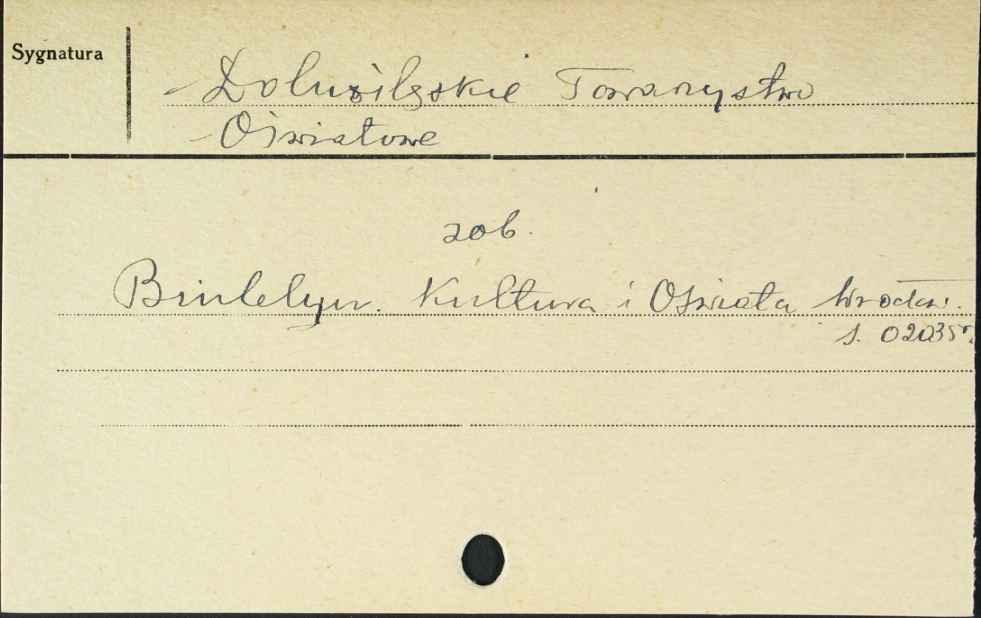 Sygnatura
Dolnośląskie Towarzystwo
Oświatowe
zob.
Biuletyn. Kultura i Oświata Wrocław.
S. 02035